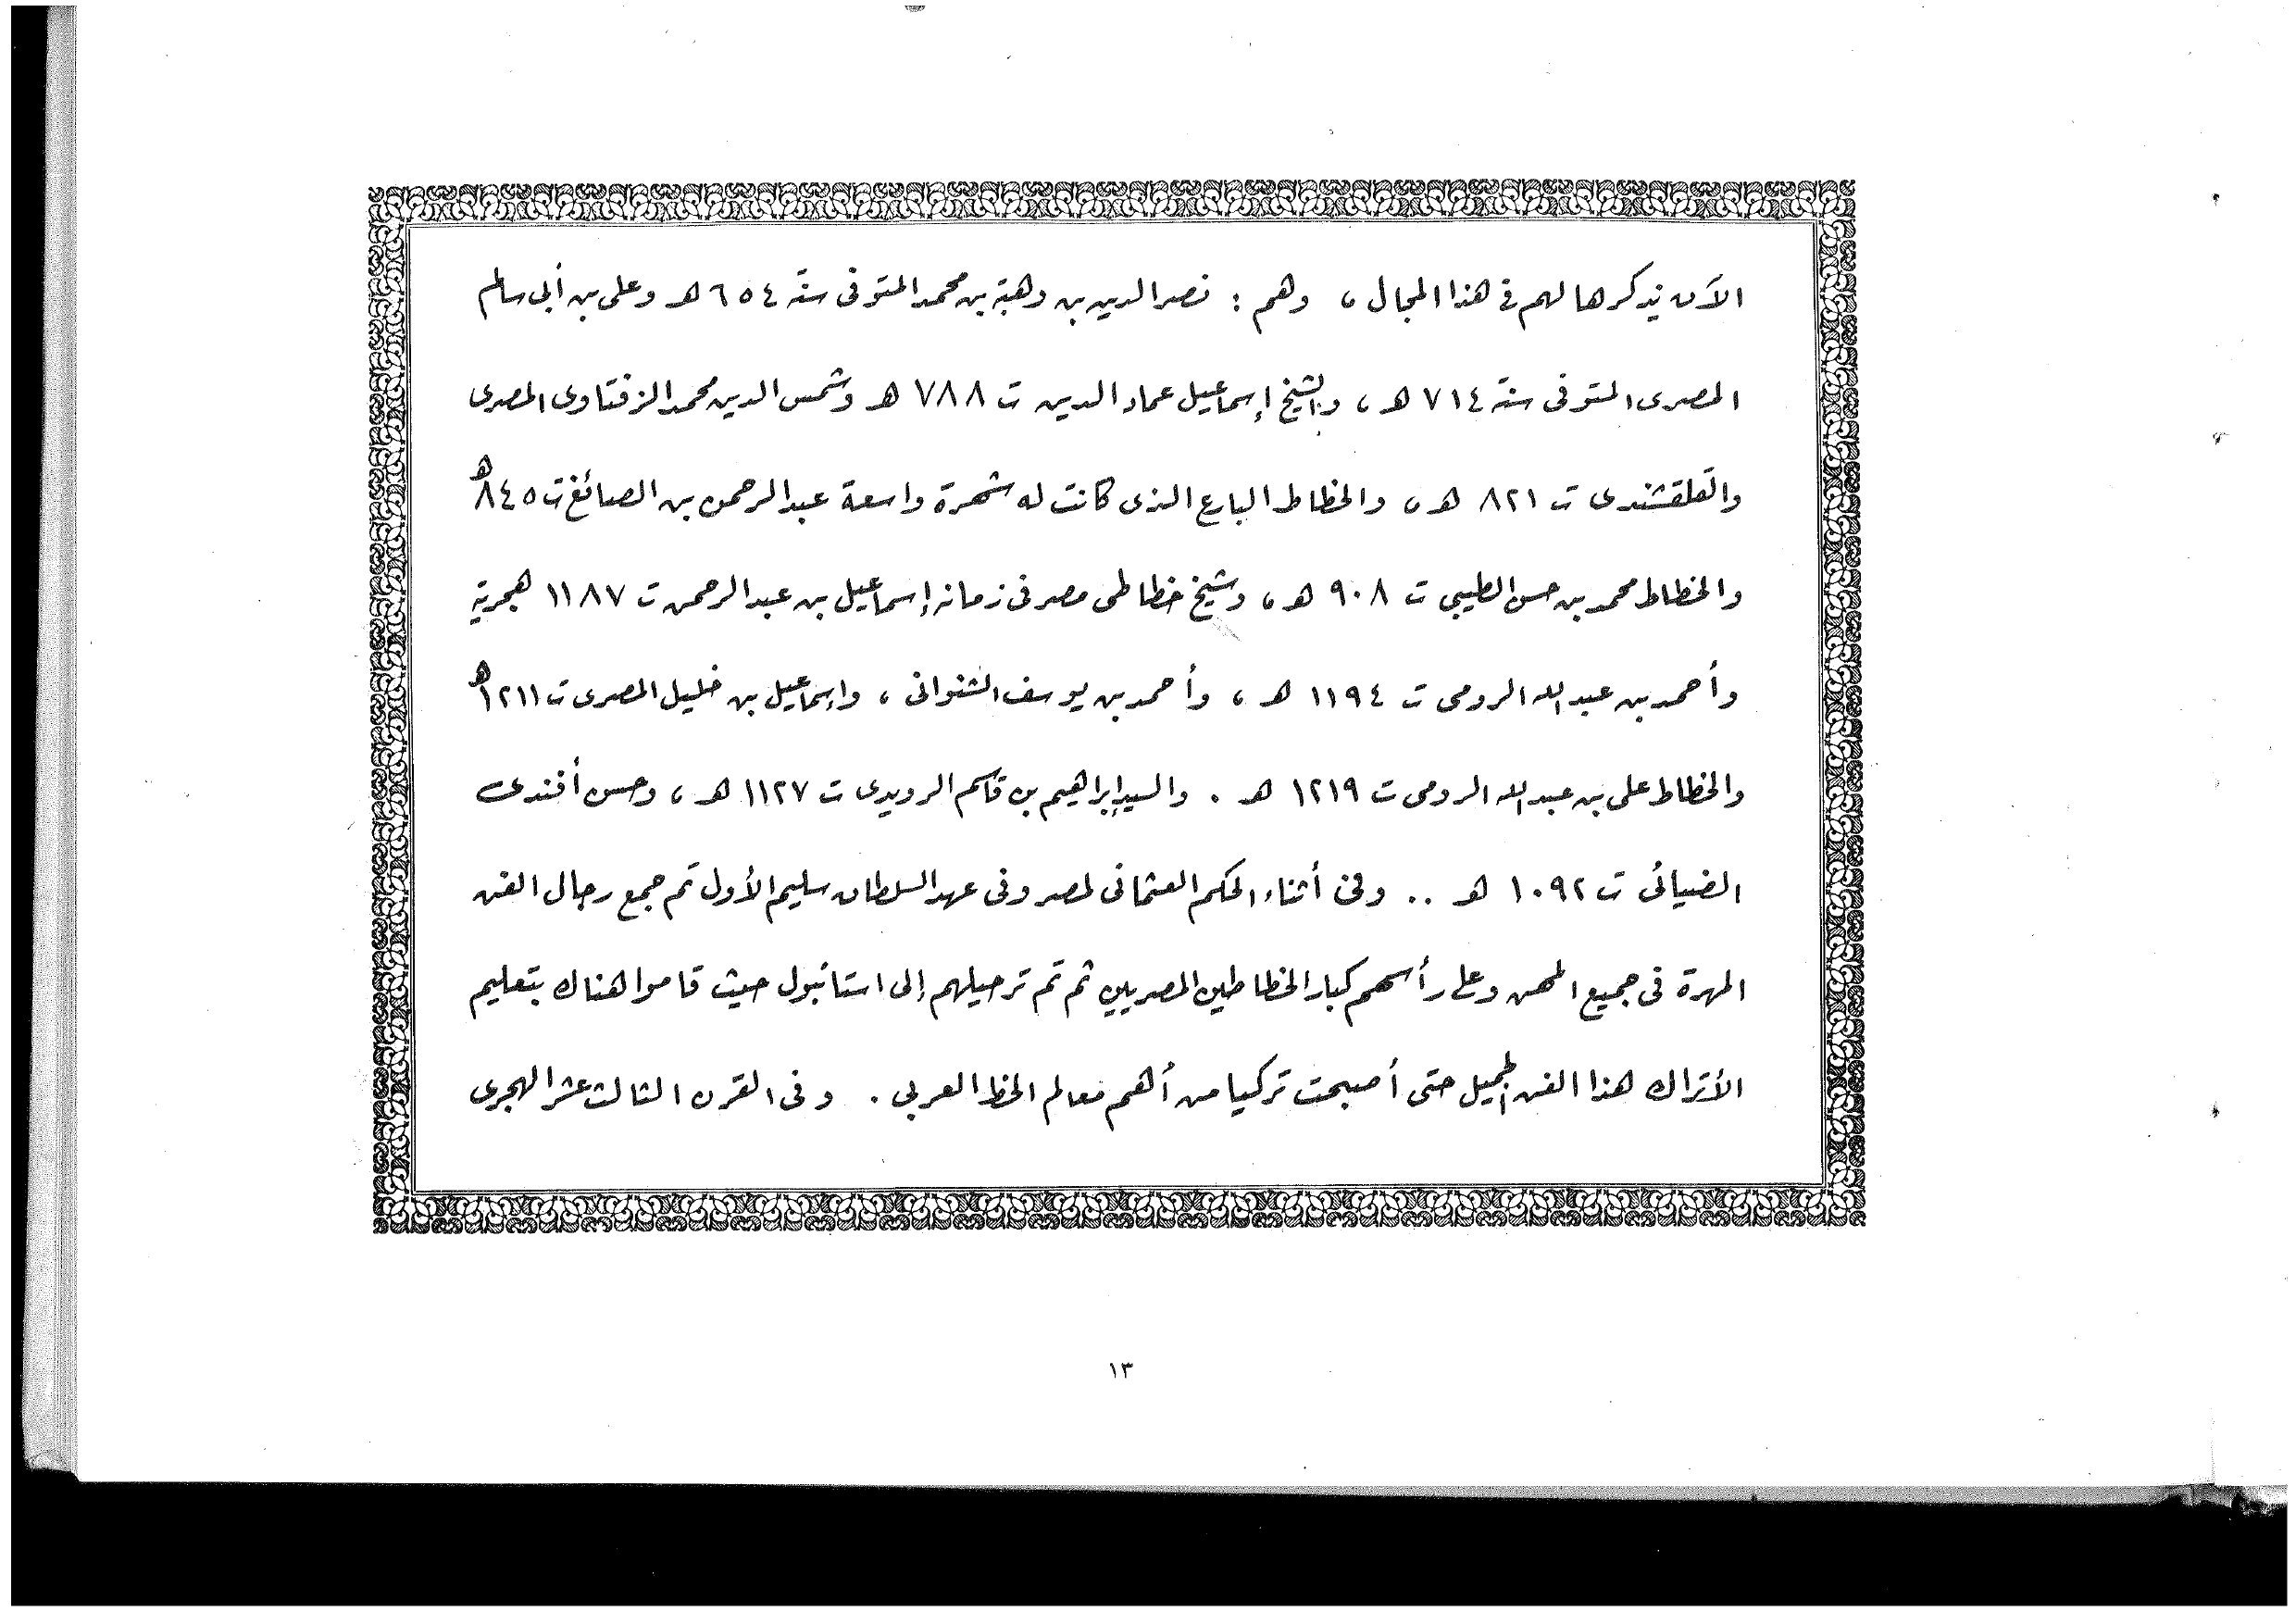 الآن نذكرها لهم فى هذا المجال ، وهم : نصر الدين بن وهبة بن محمد المتوفى سنة ٦٥٤ هـ وعلى بن أبى سالم
المصرى المتوفى سنة ٧١٤ هـ ، والشيخ إسماعيل عماد الدين ت ٧٨٨ هـ وشمس الدين محمد الزفتاوى المصرى
والقلقشندى ت ٨٢١ هـ ، والخطاط البارع الذى كانت له شهرة واسعة عبد الرحمن بن الصائغ ت ٨٤٥ هـ
والخطاط محمد بن حسن الطيبى ت ٩٠٨ هـ ، وشيخ خطاطى مصر فى زمانه إسماعيل بن عبد الرحمن ت ١١٨٧ هجرية
وأحمد بن عبد الله الرومى ت ١١٩٤ هـ ، وأحمد بن يوسف الشنوانى ، وإسماعيل بن خليل المصرى ت ١٢١١ هـ
والخطاط على بن عبد الله الرومى ت ١٢١٩ هـ . والسيد إبراهيم بن قاسم الرويدى ت ١١٢٧ هـ ، وحسن أفندى
الضيائى ت ١٠٩٢ هـ .. وفى أثناء الحكم العثمانى لمصر وفى عهد السلطان سليم الأول تم جمع رجال الفن
المهرة فى جميع المهن وعلى رأسهم كبار الخطاطين المصريين ثم تم ترحيلهم إلى استانبول حيث قاموا هناك بتعليم
الأتراك هذا الفن الجميل حتى أصبحت تركيا من أهم معالم الخط العربى . وفى القرن الثالث عشر الهجرى
١٣